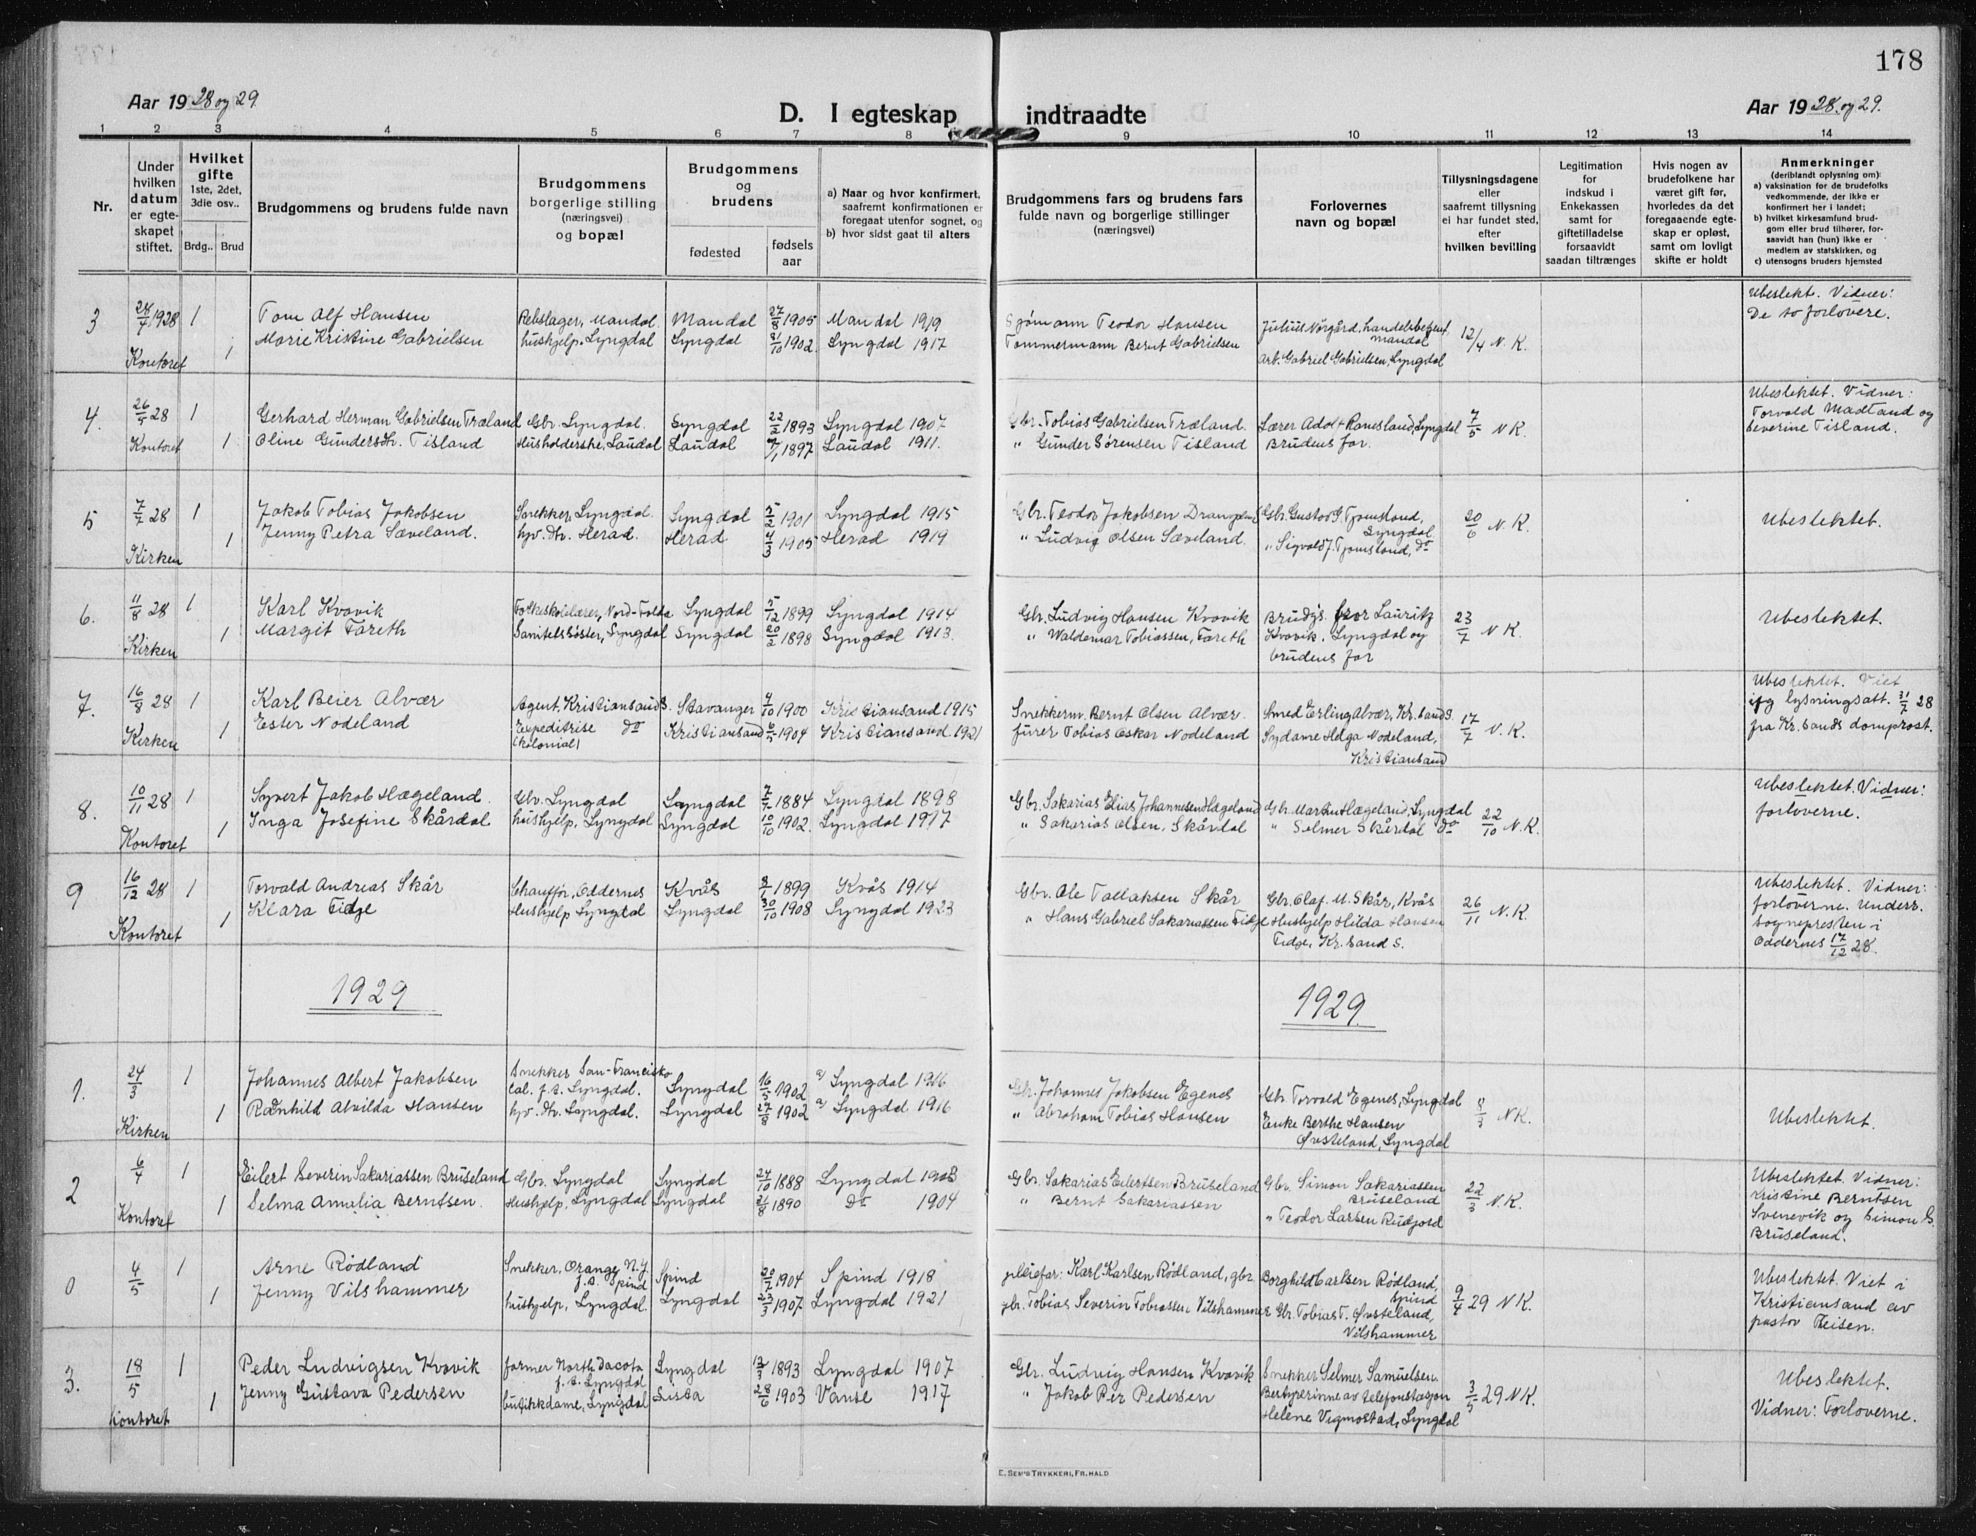 178
Aar 1928 og 29.
D. I egteskap indtraadte
Aar 1928 og 29.
1 2 3 4 5 6 7 8 9 10 11 12 13 14
Nr.
Under hvilken datum er egteskapet stiftet.
Hvilket gifte
1ste, 2det, 3die osv..
Brdg.. Brud
Brudgommens og brudens fulde navn
Brudgommens borgerlige stilling (næringsvei) og bopæl
Brudgommens og brudens
fødested
fødsels aar
a) Naar og hvor konfirmert, saafremt konfirmationen er foregaat utenfor sognet, og
b) hvor sidst gaat til alters
Brudgommens fars og brudens fars fulde navn og borgerlige stillinger (næringsvei)
Forlovernes navn og bopæl
Tillysningsdagene eller saafremt tillysning ei har fundet sted, efter hvilken bevilling
Legitimation for indskud i Enkekassen samt for giftetilladelse forsaavidt saadan tiltrænges
Hvis nogen av brudefolkene har været gift før, hvorledes da det foregaaende egteskap er opløst, samt om lovligt skifte er holdt
Anmerkninger
(deriblandt oplysning om):
a) vaksination for de brudefolks vedkommende, der ikke er konfirmert her i landet;
b) hvilket kirkesamfund brudgom eller brud tilhører, forsaavidt han (hun) ikke er medlem av statskirken, og
c) utensogns bruders hjemsted
3 24/4 1928 1 Tom Alf Hansen Rebslager, Mandal. Mandal 27/8 1905 Mandal 1919 Sjømann Teodor Hansen Julius Nørgård, handelsbetjent, Mandal 12/4 N.K. Ubeslekt. Vidner: De to forlovere.
Kontoret 1 Marie Kristine Gabrielsen hushjelp, Lyngdal Lyngdal 31/10 1902. Lyngdal 1917 Tømmermann Bernt Gabrielsen arb. Gabriel Gabrielsen, Lyngdal
4. 26/5 28 1 Gerhard Herman Gabrielsen Træland Gbr. Lyngdal. Lyngdal 22/2 1893 Lyngdal 1907 Gbr. Tobias Gabrielsen Træland. Lærer Adolf Rannesland, Lyngdal 7/5 N.K. Ubeslektet. Vidner: Torvald Madland og Severine Tisland.
Kontoret 1 Oline Gundersdt. Tisland Husholderske, Laudal Laudal 1897 Laudal 1911. " Gunder Sørensen Tisland Brudens far.
5 7/7 28 1 Jakob Tobias Jakobsen Snekker, Lyngdal. Lyngdal 5/2 1901 Lyngdal 1915 Gbr. Teodor Jakobsen Gbr. Gustav G. Tjomsland, Lyngdal 20/6 N.K. Ubeslektet.
Kirken 1 Jenny Petra Sæveland. hjv. dtr. Herad. Herad 4/3 1905 Herad 1919 " Ludvig Olsen Sæveland. " Sigvald J. Tjomsland, do
6. 11/8 28 1 Karl Kvavik Folkeskolelærer, Nord-Folda Lyngdal 5/12 1899 Lyngdal 1914 Gbr. Ludvig Hansen Kvavik Brudg's. bror Lauritz Kvavik, Lyngdal og brudens far 23/7 N.K. Ubeslektet.
Kirken 1 Margit Fareth Sanitetssøster, Lyngdal Lyngdal 20/2 1898 Lyngdal 1913. " Waldemar Tobiassen, Fareth
7. 16/8 28 1 Karl Beier Alvær Agent, Kristiansand S. Stavanger 4/10 1900 Kristiansand 1915 Snekkerm. Bernt Olsen Alvær. Smed Erling Alvær, Kr.sand S. 17/7 N.K. Ubeslektet. Viet ifg lysningsatt. 31/7 28 fra Kr.sands domprost.
Kirken 1 Ester Nodeland Expeditrise do (kolonial) Kristiansand 6/5 1904 Kristiansand. 1921 fyrer Tobias Oskar Nodeland Sydame Helga Nodeland, Kristiansand
8. 10/11 28 1 Syvert Jakob Hægeland. Gbr. Lyngdal Lyngdal 1884 Lyngdal 1898 Gbr. Sakarias Elias Johannesen Hægeland Gbr. Martin Hægeland, Lyngdal 22/10 N.K. Ubeslektet. Vidner: forloverne.
Kontoret 1 Inga Josefine Skårdal hushjelp, Lyngdal Lyngdal 10/10 1902. Lyngdal 1917 " Sakarias Olsen, Skårdal " Selmer Skårdal do
9 16/12 28 1 Torvald Andreas Skår Chauffør, Oddernes Kvås 8/1 1899 Kvås 1914 Gbr. Ole Tallaksen Skår Gbr. Olaf M. Skår, Kvås 26/11 N.K. Ubeslektet. Vidner: forloverne. Underr. sognepresten i Oddernes 17/12 28.
Kontoret 1 Klara Tidge Hushjelp Lyngdal Lyngdal 30/10 1908 Lyngdal 1923 " Hans Gabriel Sakariassen Tidge Hushjelp Hilda Hansen Tidge, Kr.sand S.
1929 1929
1. 24/3 1 Johannes Albert Jakobsen Snekker San-Francisko Cal. f. t. Lyngdal. Lyngdal 16/5 1902 a) Lyngdal 1916 Gbr. Johannes Jakobsen Egenes Gbr Torvald Egenes, Lyngdal 8/3 N.K. Ubeslektet.
Kirken 1 Ragnhild Alvilda Hansen hjv. dtr. Lyngdal. Lyngdal 27/8 1902 a) Lyngdal 1916 " Abraham Tobias Hansen Enke Berthe Hansen Øvsteland, Lyngdal
2 6/4 1 Eilert Severin Sakariassen Bruseland Gbr. Lyngdal Lyngdal 24/10 1888 Lyngdal 1903 Gbr. Sakarias Eilertsen Bruseland Gbr. Simon Sakariassen Bruseland 22/3 N.K. Ubeslektet. Vidner: Kristine Berntsen Svenevik og Simon S. Bruseland.
Kontoret 1 Selma Amalia Berntsen. Hushjelp, Lyngdal Lyngdal 21/8 1890 do 1904 " Bernt Sakariassen " Teodor Larsen Rudjord
0 4/5 1 Arne Rødland Snekker, Orange, N.J. f. t. Spind Spind 20/7 1904 Spind 1918 pleiefar: Karl Karlsen Rødland, gbr. Borghild Carlsen Rødland, Spind 9/4 29 N.K. Ubeslektet. Viet i Kristiansand av pastor Reisen.
1 Jenny Vilshammer hushjelp, Lyngdal. Lyngdal 23/3 1907 Lyngdal 1921 gbr. Tobias Severin Tobiassen Vilshammer Gbr. Tobias T. Øvsteland, Vilshammer
3. 18/5 1 Peder Ludvigsen Kvavik farmer North Dacota f. t. Lyngdal Lyngdal 1893 Lyngdal 1907 Gbr. Ludvig Hansen Kvavik Snekker Selmer Samuelsen. 3/5 29 N.K. Ubeslektet. Vidner: Forloverne.
Kontoret 1 Jenny Gustava Pedersen butikkdame, Lyngdal Lista 28/6 1903 Vanse 1917 " Jakob Per Pedersen Bestyrerinne av telefonstasjon Helene Vigmostad, Lyngdal
E. SEM'S TRYKKERI, FR. HALD